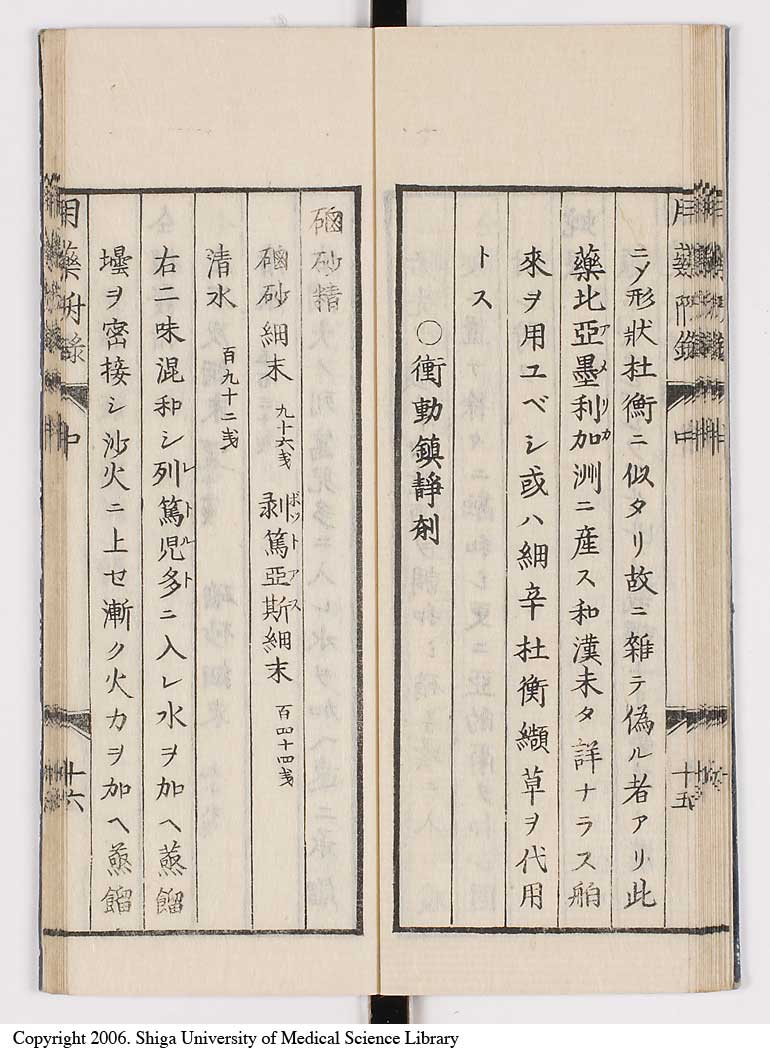 ニメ形狀杜衡ニ似タリ故ニ雜テ偽ル者アリ此
藥北亞墨利加洲ニ産ス和漢未タ詳ナラス舶
アメリカ
來ヲ用ユベシ或ハ細辛杜衡纈草ヲ代用
トス
○衝動鎮靜劑
用藥附録 中 十五
磠砂精
磠砂細末 九十六戔 剥篤亞斯細末 百四十四戔
ボットアス
清水 百九十二戔
右二味混和シ列篤児多ニ入レ水ヲ加ヘ蒸餾
レトルト
壜ヲ密接シ沙火ニ上セ漸ク火力ヲ加ヘ蒸餾
用藥附録 中 十六
Copyright 2006. Shiga University of Medical Science Library